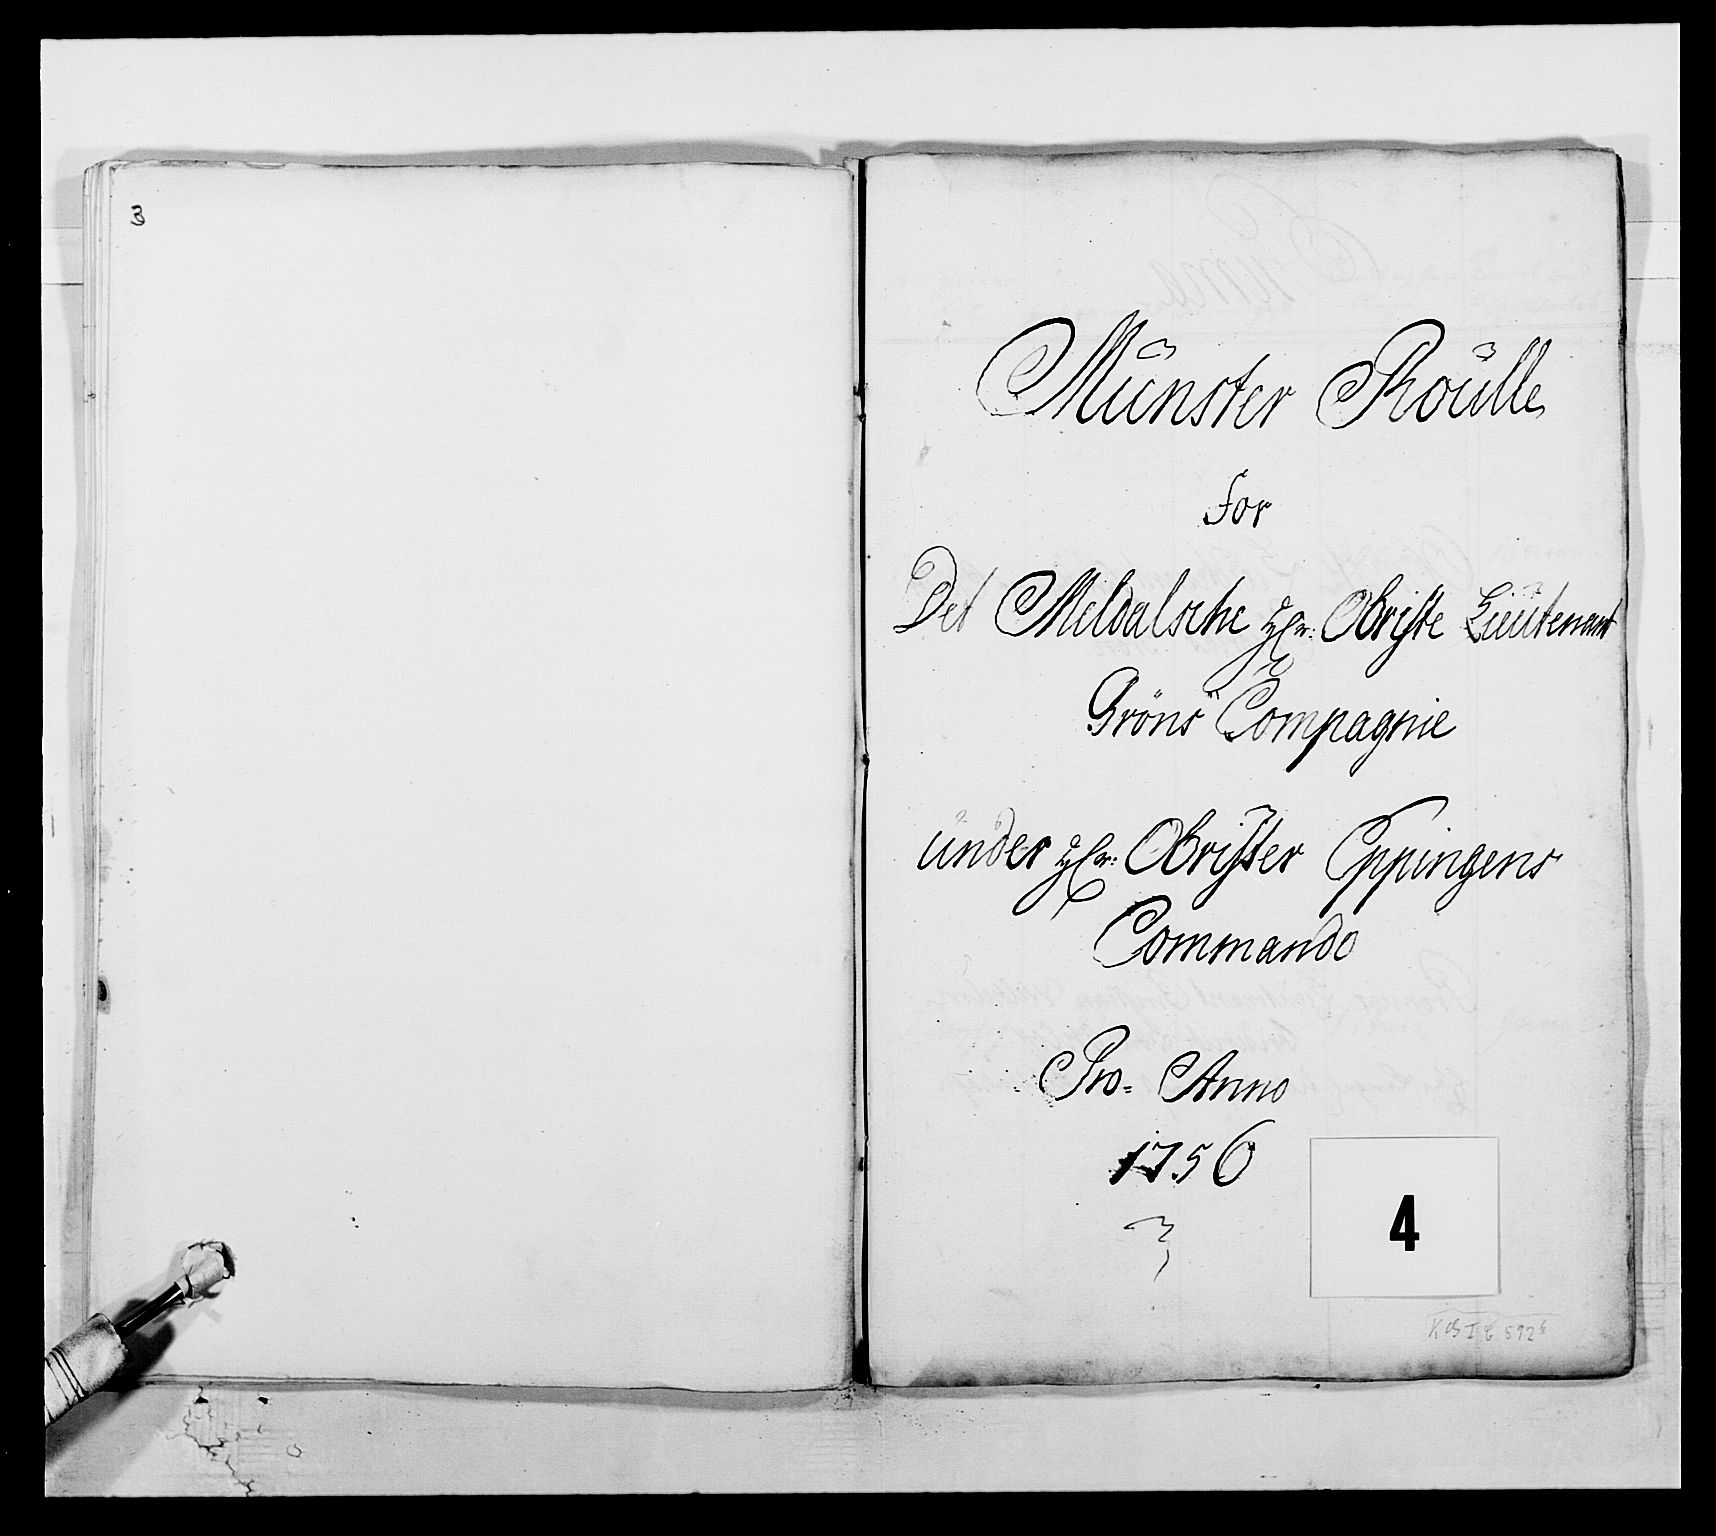 3
Münster Roülle
for
Det Meldalsche Hr: Obriste Lieütenant
Gröns Compagnie
ünder Hr: Obrister Eppingens
Commando
Pro= Anno
1756
4